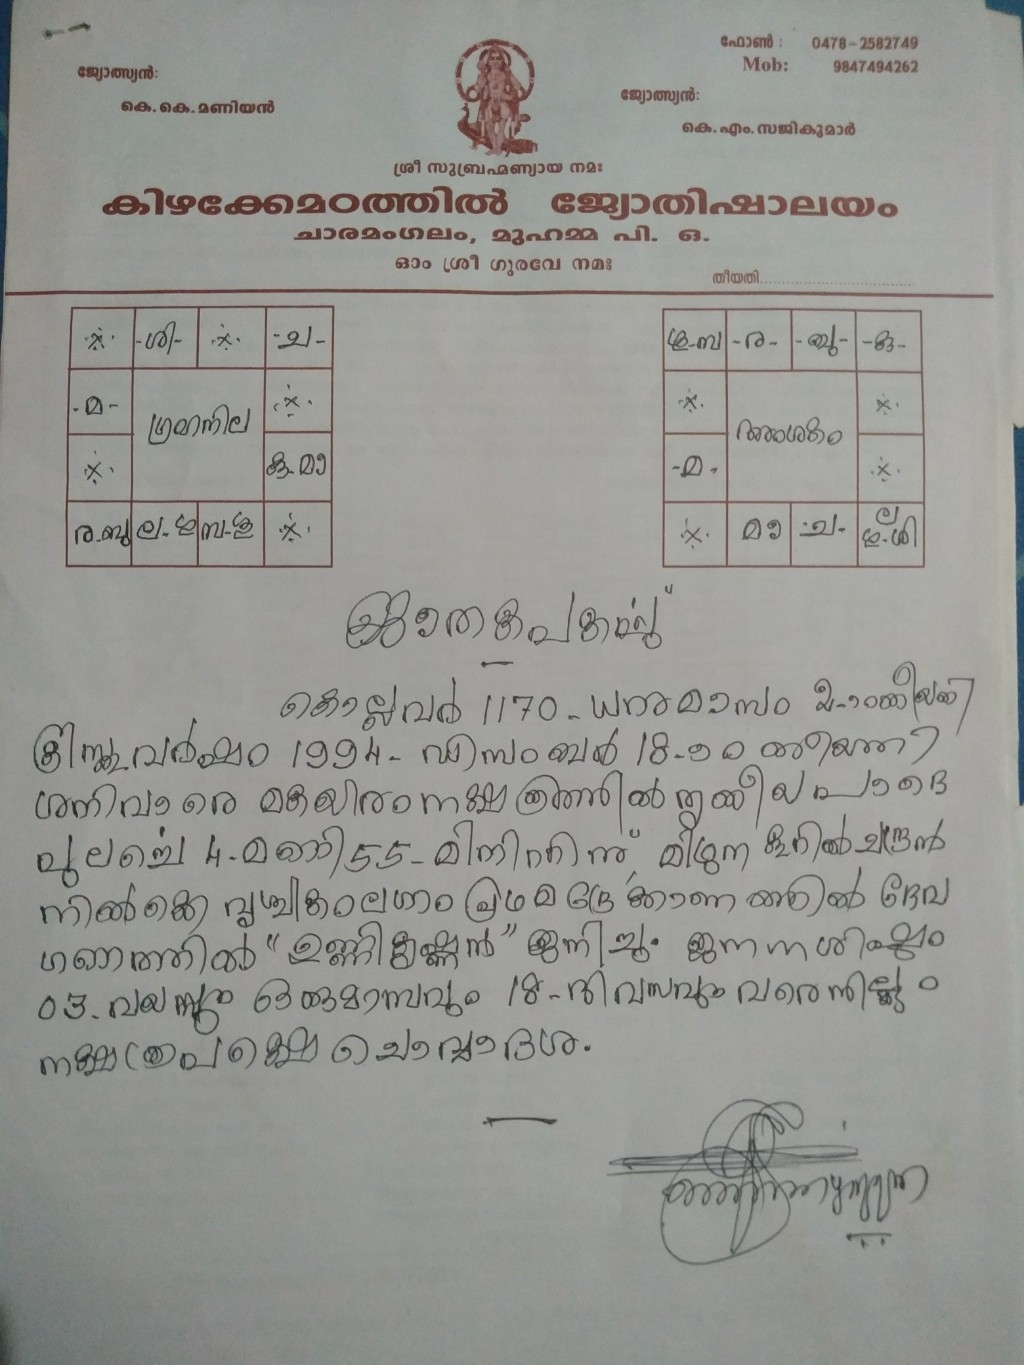 ഫോൺ : 0478-2582749
Mob: 9847494262
ജ്യോത്സ്യൻ:
കെ.കെ.മണിയൻ
ജ്യോത്സ്യൻ:
കെ.എം.സജികുമാർ
ശ്രീ സുബ്രഹ്മണ്യായ നമഃ
കിഴക്കേമഠത്തിൽ ജ്യോതിഷാലയം
ചാരമംഗലം, മുഹമ്മ പി. ഒ.
ഓം ശ്രീ ഗുരവേ നമഃ
തീയതി
-ശി- -ച-
-മ-
ഗ്രഹനില
കു-മാ
ര-ബു
-ര- -ബു- -കു-
അംശകം
-മ-
മാ ച- ല
ജാതകപകർപ്പ്
കൊല്ലവർ 1170-ധനുമാസം
ക്രിസ്തുവർഷം 1994-ഡിസംബർ 18-ാം തീയതി
ശനിവാരെ മകയിരം നക്ഷത്രത്തിൽ തൃക്കീയപാദെ
പുലർച്ചെ 4-മണി 55-മിനിറ്റിന്, മിഥുന കൂറിൽ ചന്ദ്രൻ
നിൽക്കെ വൃശ്ചികംലഗ്നം പ്രഥമ ദ്രേക്കാണത്തിൽ ദേവ
ഗണത്തിൽ "ഉണ്ണികൃഷ്ണൻ" ജനിച്ചും ജനനശിഷ്ടം
03-വയസ്സും ഒരുമാസവും 18-ദിവസവും വരെനില്പും
നക്ഷത്രപക്ഷെ ചൊവ്വാദശ.